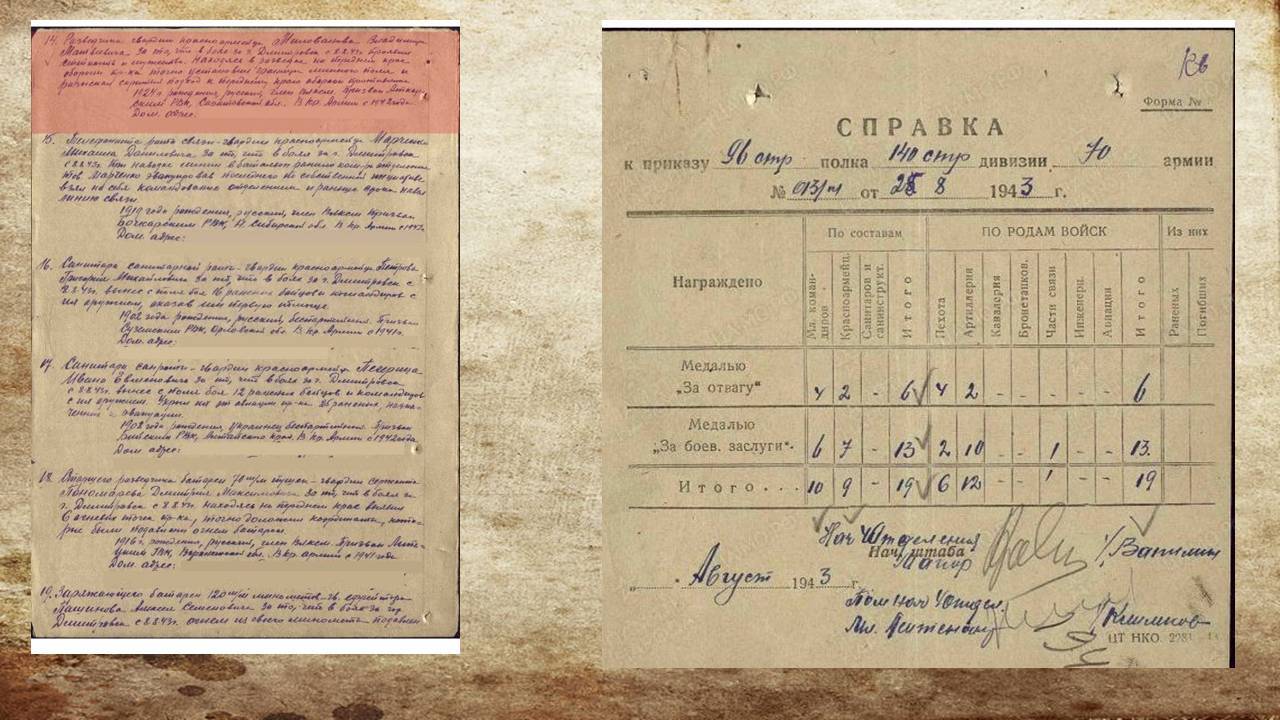 14. Разведчика гвардии красноармейца Милованова Владимира
Матвеевича за то, что в боях за г. Дмитровск с 8.8.43г. проявил
стойкость и мужество. Находясь в разведке на переднем крае
обороны пр-ка точно установил границы минного поля и
скрытый подход к переднему краю обороны противника.
1924 г. рождения, русский, член ВЛКСМ. Призван
РВК, Саратовской обл. В Кр. Армии с 1942 года.
Дом. адрес:
15. Телефониста роты связи - гвардии красноармейца Марченко
Михаила Даниловича за то, что в боях за г. Дмитровск
с 8.8.43г. при наводке линии в батальон ранило ком-ра отделения
тов Марченко эвакуировав последнего по собственной инициативе
взял на себя командование отделением и раньше срока навел
линию связи.
1919 года рождения, русский, член ВЛКСМ Призван
РВК, Н. Сибирской обл. В Кр. Армии с 1942г.
Дом. адрес:
16. Санитара санитарной роты - гвардии красноармейца Петрова
Григория Михайловича за то, что в боях за г. Дмитровск с
8.8.43г. вынес с поля боя 16 раненых бойцов и командиров с
их оружием, оказав им первую помощь.
1902 года рождения, русский, беспартийный. Призван
Суземским РВК, Орловской обл. В Кр. Армии с 1941г.
Дом. адрес:
17. Санитара санроты - гвардии красноармейца
Ивана Евменовича за то, что в боях за г. Дмитровск
с 8.8.43г. вынес с поля боя 12 раненых бойцов и командиров
с их оружием. Укрыл их от авиации пр-ка
и эвакуации.
1902 года рождения, украинец беспартийный. Призван
РВК, Алтайского края. В Кр. Армии с 1942 года.
Дом. адрес:
18. Старшего разведчика батареи 76 м/м пушек - гвардии сержанта
Пономарева Дмитрия Максимовича за то, что в боях за
г. Дмитровск с 8.8.43г. находясь на переднем крае выявил
6 огневых точек пр-ка, точно доложил координаты, кото-
рые были подавлены огнем батареи.
1916 г. рождения, русский, член ВЛКСМ. Призван
РВК, Воронежской обл. В Кр. армии с 1941 года
Дом. адрес:
19. Заряжающего батареи 120 м/м минометов - гв. ефрейтора
Пашинова Алексея Семеновича за то, что в боях за гор.
Дмитровск с 8.8.43г. огнем из своего миномета подавлен
Форма №
СПРАВКА
к приказу 96 стр полка 140 стр дивизии 70 армии
№ 013/н от 25 8 1943 г.
Награждено По составам ПО РОДАМ ВОЙСК Из них
Мл. командиров Красноармейц. Санитаров и санинструкт. Итого Пехота Артиллерия Кавалерия Бронетанков. Части связи Инженерн. Авиация Итого Раненых Погибших
Медалью
„За отвагу“ 4 2 - 6 4 2 - - - - - 6
Медалью
„За боев. заслуги“ 6 7 - 13 2 10 - - 1 - - 13.
Итого... 10 9 - 19 6 12 - - 1 - - 19
Нач 4 отделения
Нач. штаба
Майор /Ванилин
„ " Август 1943 г.
Пом нач 4 отдел.
Мл. Лейтенант /Климнов
ЦТ НКО.